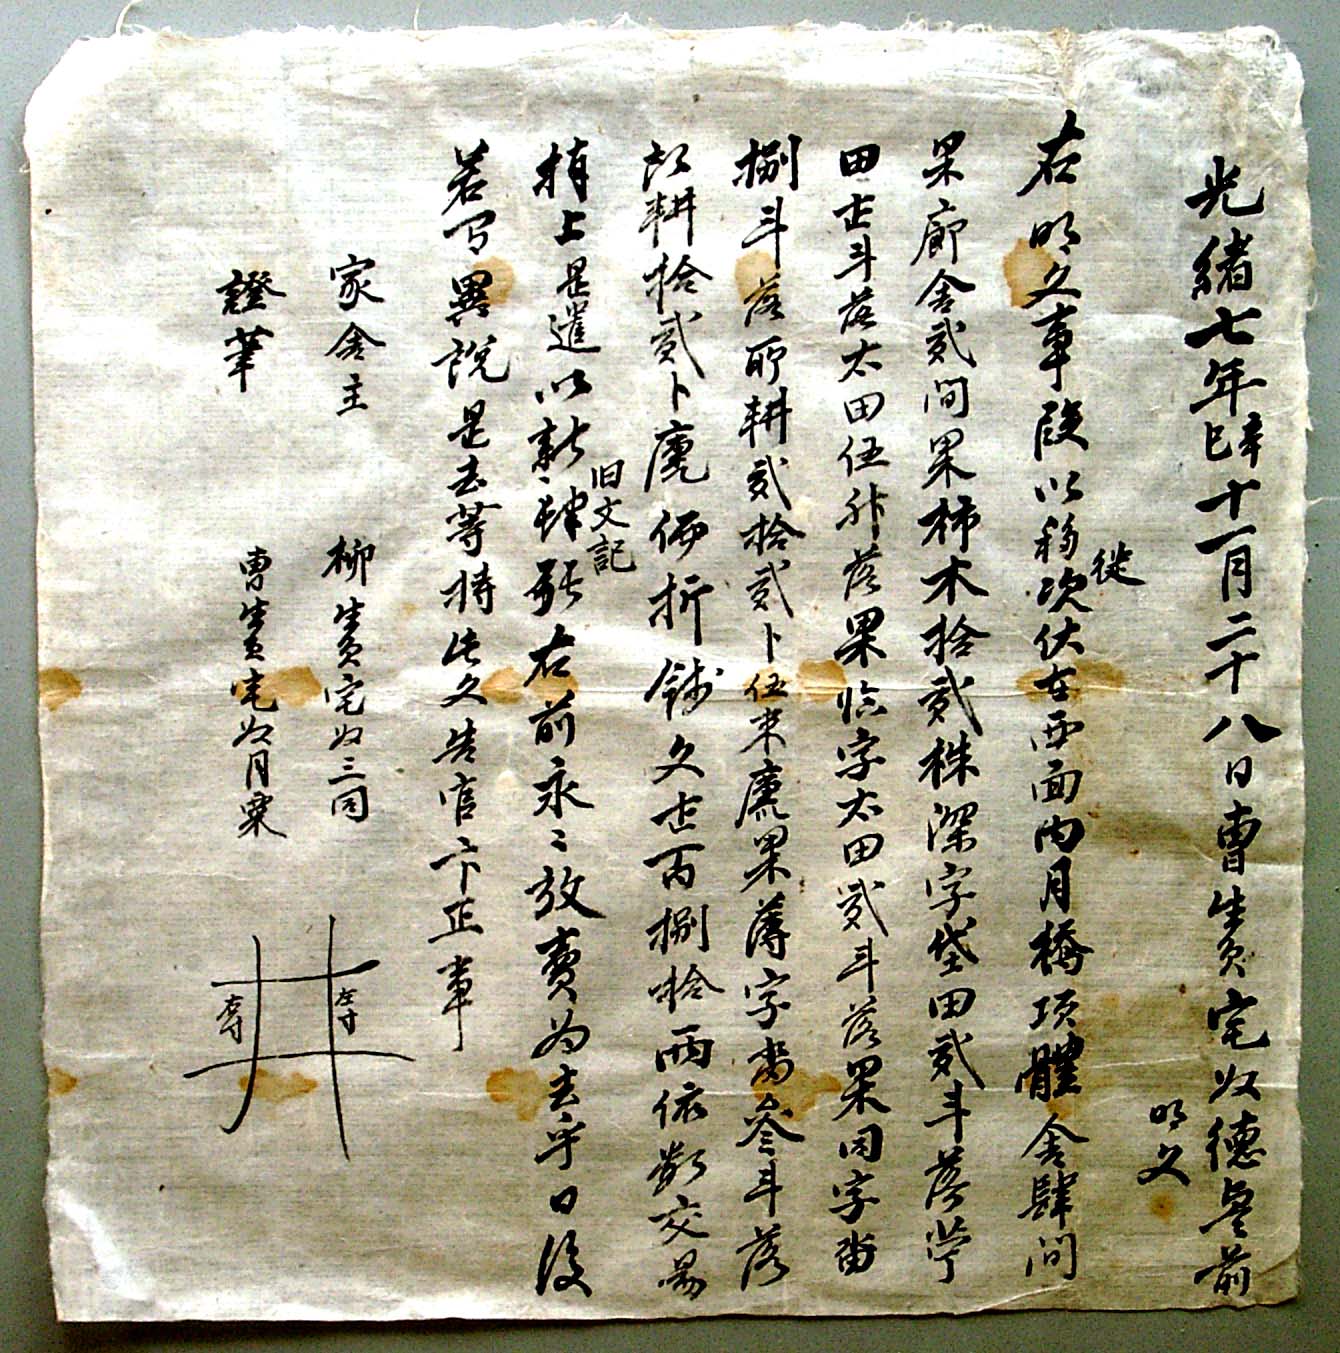 光緖七年辛巳十一月二十八日曹生員宅奴德每前
明文
右明文事段以移徙次伏在西面內月橋項體舍肆間
果廊舍貳間果柿木拾貳株深字垈田貳斗落
田七斗落太田伍升落果臨字太田貳斗落果同字畓
捌斗落所耕貳拾貳卜伍束廤果薄字畓叄斗落
所耕拾貳卜廤価折錢文七百捌拾兩依數交易
捧上是遣以新旧文記肆張右前永〻放賣爲去乎日後
若有異說是去等持此文告官卞正事
家舍主 柳生員宅奴三同 左寸
證筆 曹生員宅奴月栗 右寸